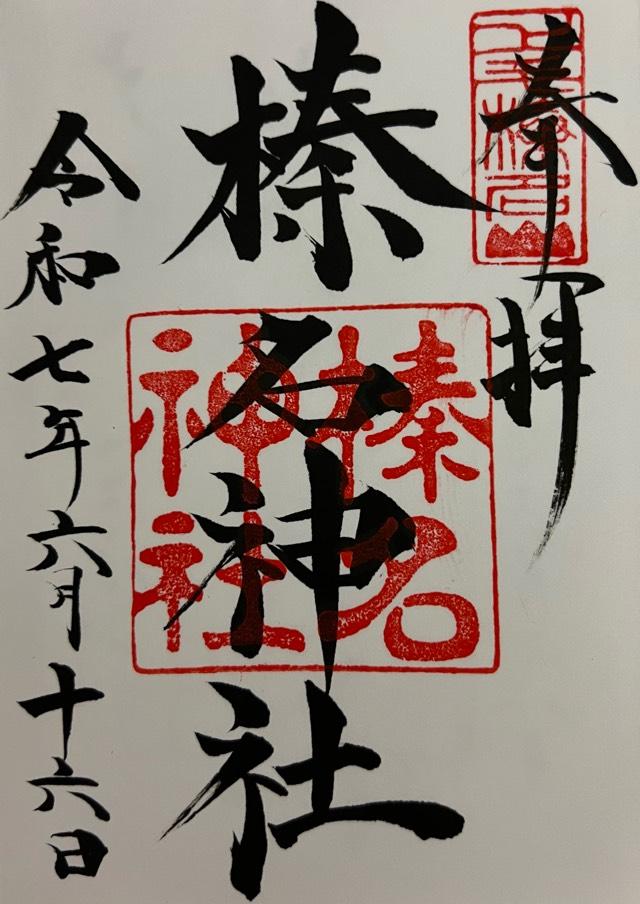 奉拝
榛名神社
榛名
神社
令和七年六月十六日